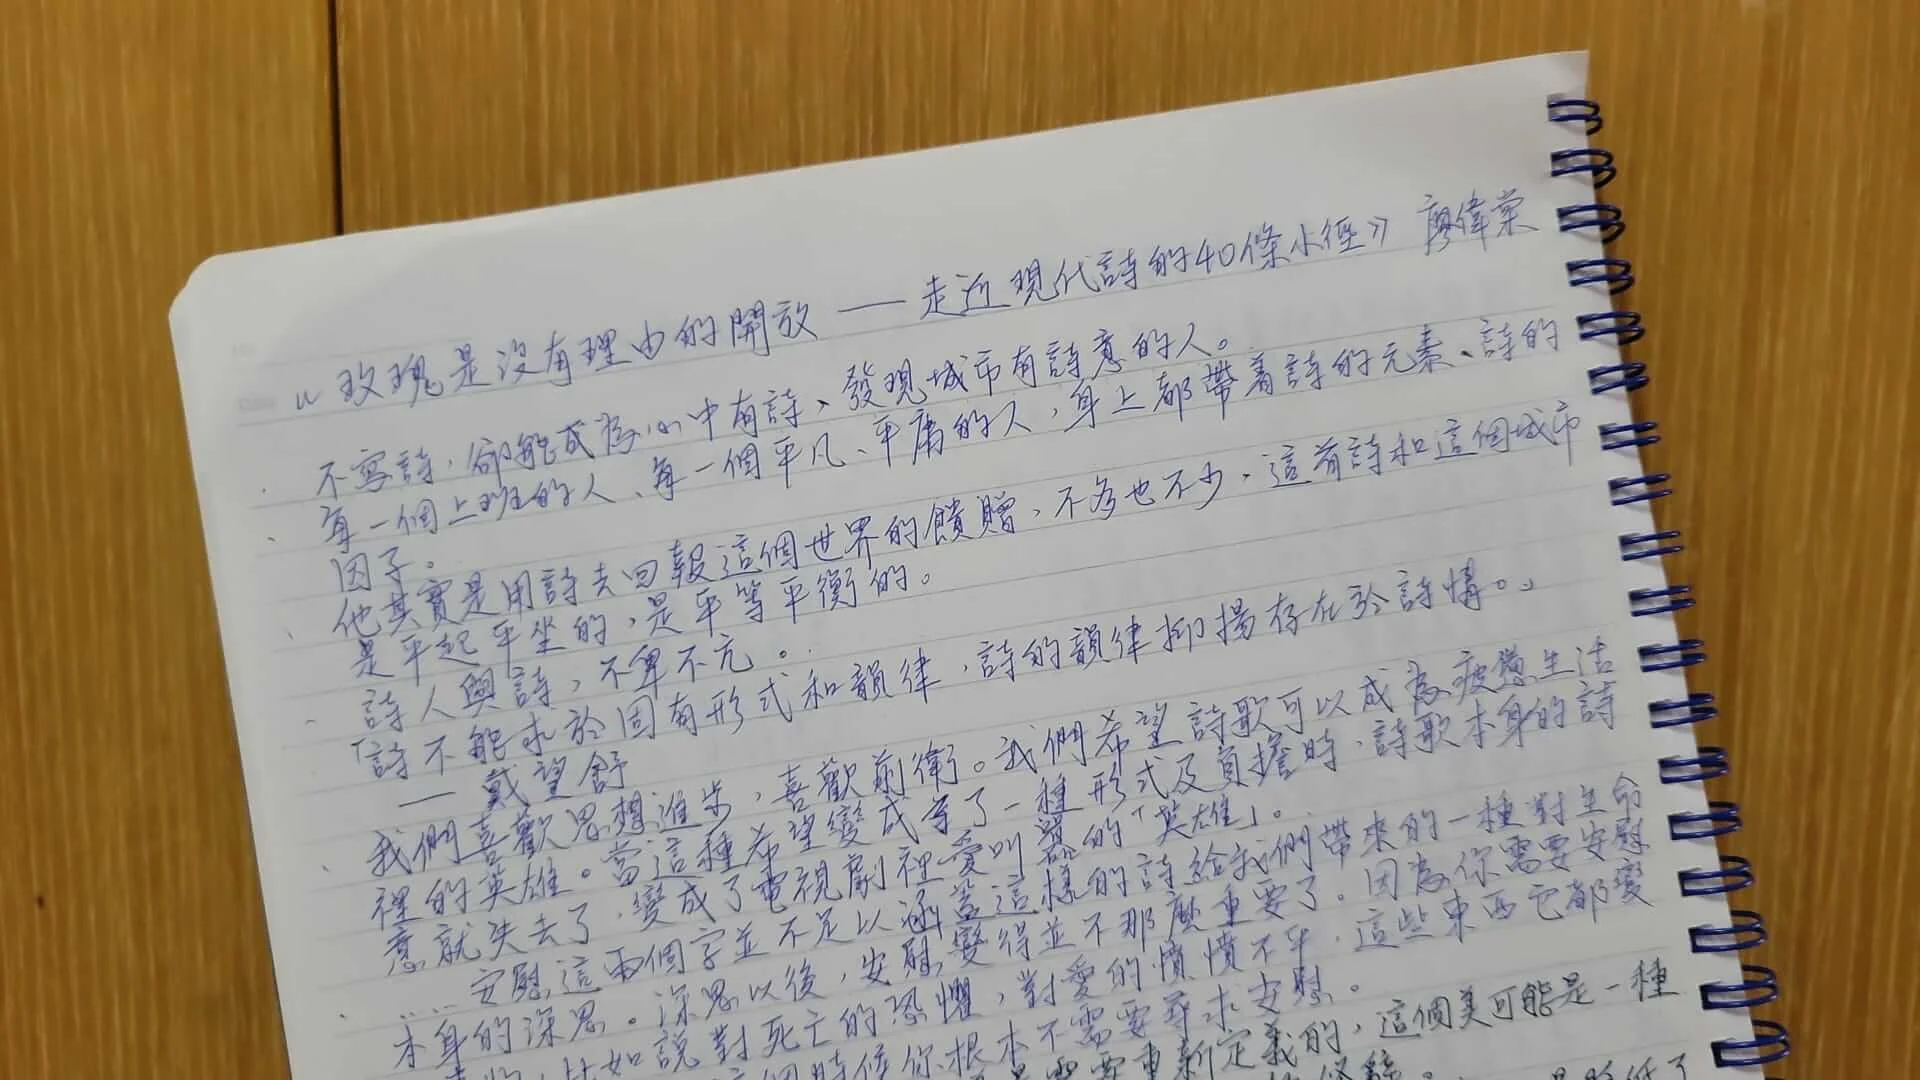 《玫瑰是沒有理由的開放——走近現代詩的40條小徑》 廖偉棠
· 不寫詩,卻能成為心中有詩、發現城市有詩意的人。
· 每一個上班的人、每一個平凡、平庸的人,身上都帶着詩的元素、詩的
因子。
· 他其實是用詩去回報這個世界的饋贈,不多也不少,這首詩和這個城市
是平起平坐的,是平等平衡的。
· 詩人與詩,不卑不亢。
「詩不能求於固有形式和韻律,詩的韻律抑揚存在於詩情。」
—戴望舒
· 我們喜歡思想進步,喜歡前衛。我們希望詩歌可以成為疲憊生活
裡的英雄。當這種希望變成了一種形式及負擔時,詩歌本身的詩
意就失去了,變成了電視劇裡愛叫囂的「英雄」。
· ……安慰這兩個字並不足以涵蓋這樣的詩給我們帶來的一種對生命
本身的深思。深思以後,安慰變得並不那麼重要了。因為你需要安慰
比如說對死亡的恐懼,對愛的憤憤不平,這些東西它都變
這個時候你根本不需要尋求安慰。
需要重新定義的,這個美可能是一種